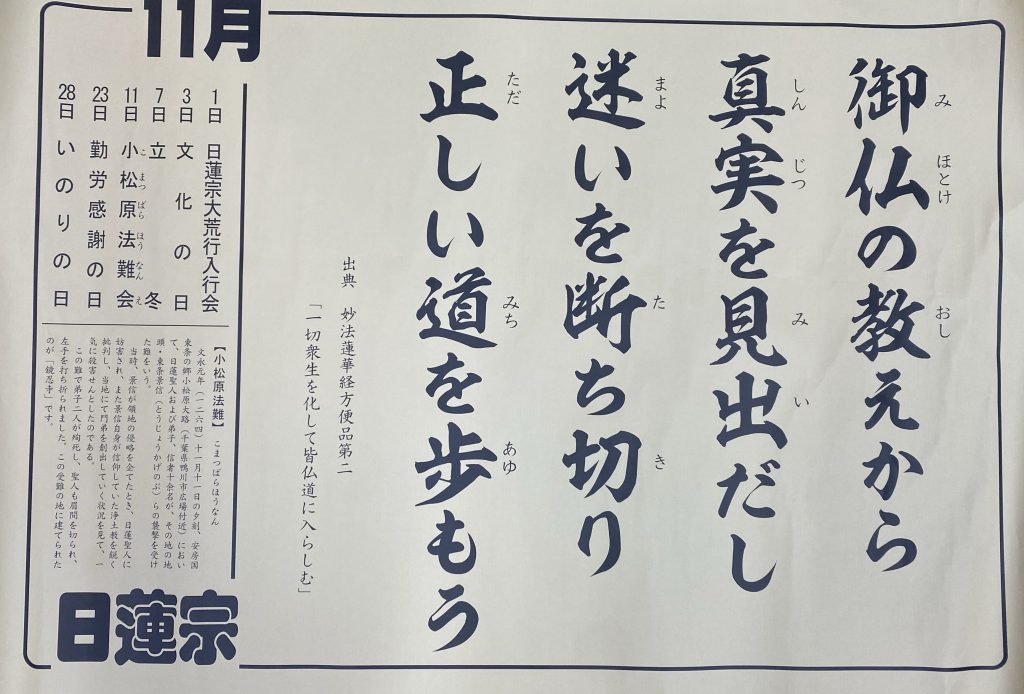 御仏の教えから
みほとけ おし
真実を見出だし
しんじつ み い
迷いを断ち切り
まよ た き
正しい道を歩もう
ただ みち あゆ
出典 妙法蓮華経方便品第二
「一切衆生を化して皆仏道に入らしむ」
11月
1日 日蓮宗大荒行入行会
3日 文化の日
7日 立冬
11日 小松原法難会
こまつばらほうなんえ
23日 勤労感謝の日
28日 いのりの日
【小松原法難】 こまつばらほうなん
文永元年(一二六四)十一月十一日の夕刻、安房国
東条の郷小松原大路(千葉県鴨川市広場付近)におい
て、日蓮聖人および弟子、信者十余名が、その地の地
頭・東条景信(とうじょうかげのぶ)らの襲撃を受け
た難をいう。
当時、景信が領地の侵略を企てたとき、日蓮聖人に
妨害され、また景信自身が信仰していた浄土教を鋭く
批判し、当地にて門弟を創出していく状況を見て、一
気に殺害せんとしたのである。
この難で弟子二人が殉死し、聖人も眉間を切られ、
左手を打ち折られました。この受難の地に建てられた
のが「鏡忍寺」です。
日蓮宗